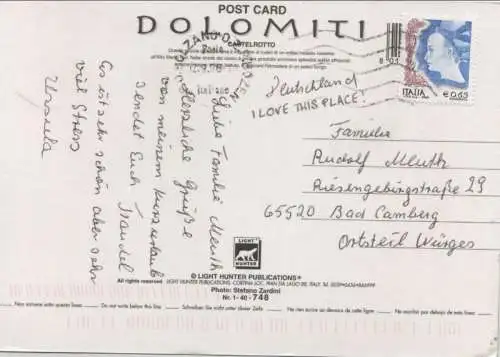 POST CARD
DOLOMITI
CASTELROTTO
Liebe Familie Meuth
Herzliche Grüße
von meinem Kurzurlaub
sendet Euch Traudel
Es ist sehr schön aber sehr
viel Stress
Ursula
Deutschland
I LOVE THIS PLACE!
ITALIA
€ 0,65
Familie
Rudolf Meuth
Riesengebirgstraße 29
65520 Bad Camberg
Ortsteil Würges
LIGHT
HUNTER
© LIGHT HUNTER PUBLICATIONS®
All rights reserved. LIGHT HUNTER PUBLICATIONS. CORTINA LOC. PIAN DA LAGO BL. ITALY
Photo: Stefano Zardini
Nr. 1-40-748
Non scrivere sotto questa linea
Do not write below this line
Schreiben Sie nicht unter dieser Zeile
Ne rien écrire en dessous de cette ligne
No escribir por debajo de esta línea